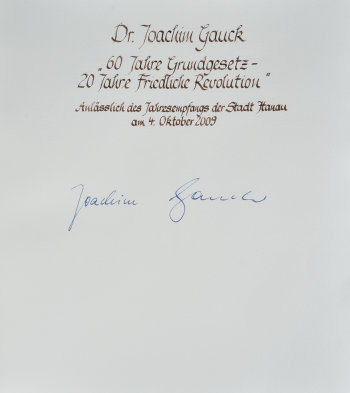 Dr. Joachim Gauck
„60 Jahre Grundgesetz –
20 Jahre Friedliche Revolution"
Anlässlich des Jahresempfangs der Stadt Hanau
am 4. Oktober 2009
Joachim Gauck